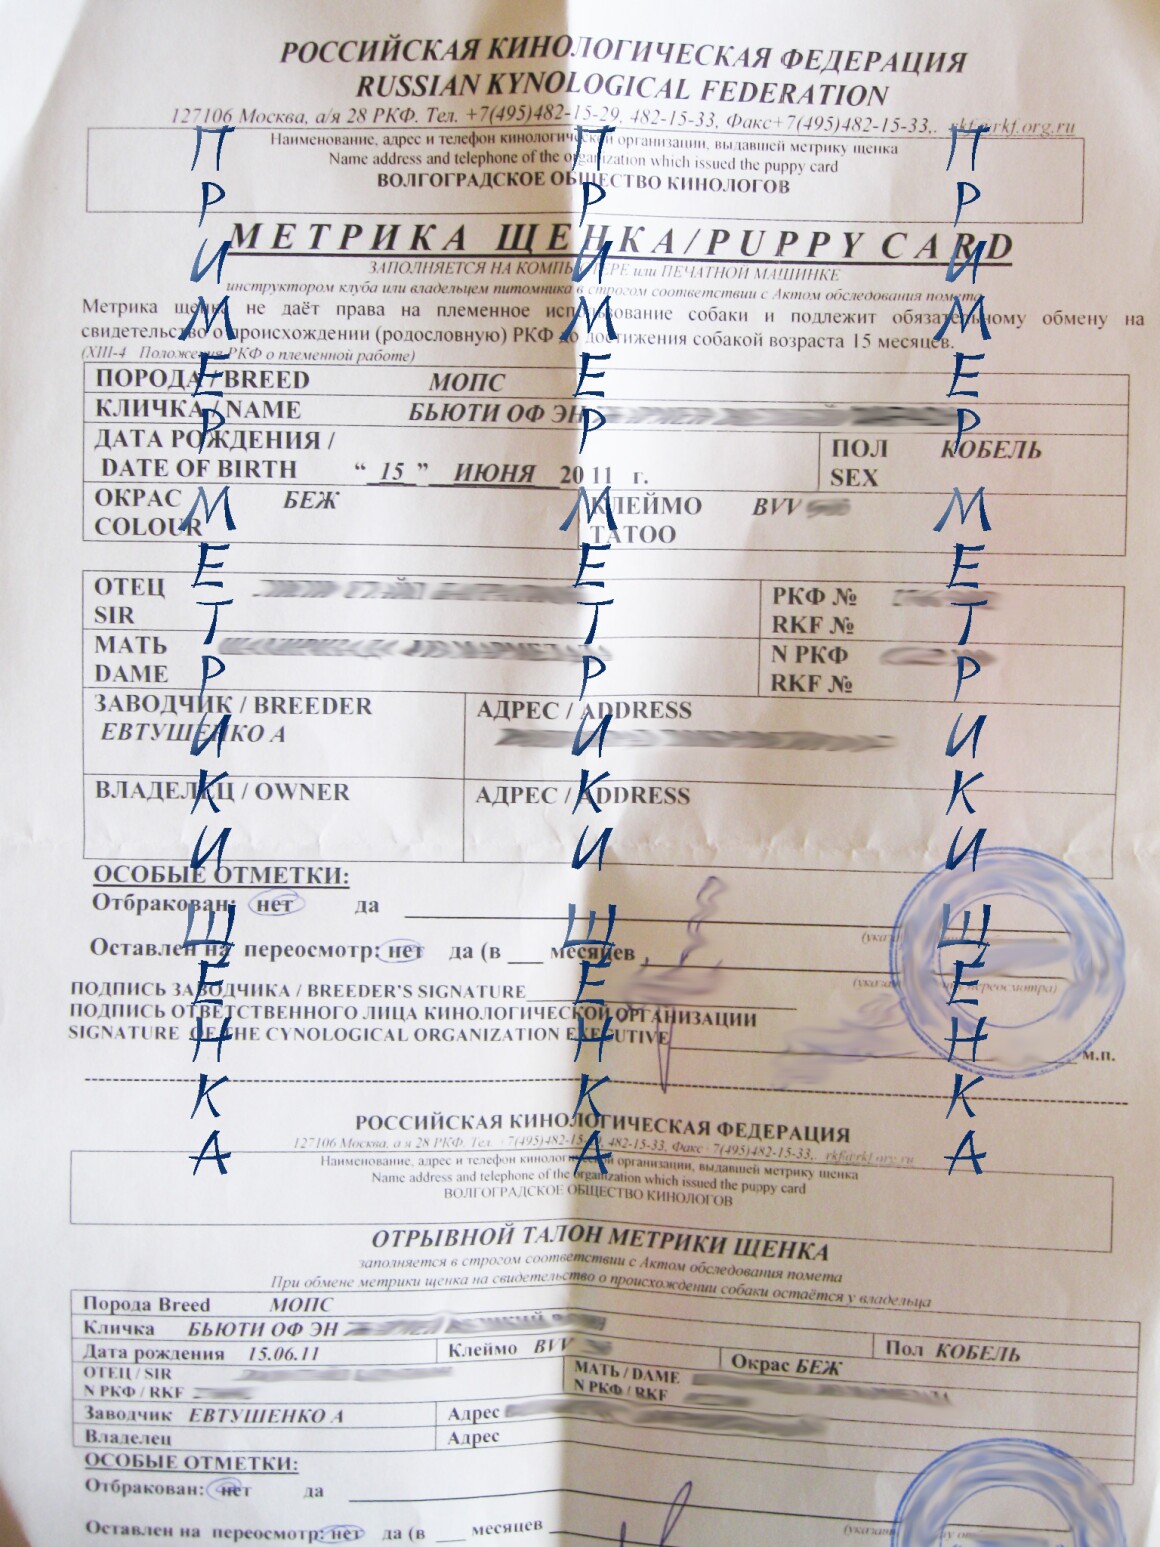 РОССИЙСКАЯ КИНОЛОГИЧЕСКАЯ ФЕДЕРАЦИЯ
RUSSIAN KYNOLOGICAL FEDERATION
127106 Москва, а/я 28 РКФ. Тел. +7(495)482-15-29, 482-15-33, Факс+7(495)482-15-33,. rkf@rkf.org.ru
Наименование, адрес и телефон кинологической организации, выдавшей метрику щенка
Name address and telephone of the organization which issued the puppy card
ВОЛГОГРАДСКОЕ ОБЩЕСТВО КИНОЛОГОВ
МЕТРИКА ЩЕНКА/PUPPY CARD
ЗАПОЛНЯЕТСЯ НА КОМПЬЮТЕРЕ или ПЕЧАТНОЙ МАШИНКЕ
инструктором клуба или владельцем питомника в строгом соответствии с Актом обследования помета
Метрика щенка не даёт права на племенное использование собаки и подлежит обязательному обмену на
свидетельство о происхождении (родословную) РКФ до достижения собакой возраста 15 месяцев.
(XIII-4 Положения РКФ о племенной работе)
ПОРОДА / BREED МОПС
КЛИЧКА / NAME БЬЮТИ ОФ ЭН
ДАТА РОЖДЕНИЯ / ПОЛ КОБЕЛЬ
DATE OF BIRTH “ 15 ” ИЮНЯ 2011 г. SEX
ОКРАС БЕЖ КЛЕЙМО BVV
COLOUR TATOO
ОТЕЦ РКФ №
SIR RKF №
МАТЬ N РКФ
DAME RKF №
ЗАВОДЧИК / BREEDER АДРЕС / ADDRESS
ЕВТУШЕНКО А
ВЛАДЕЛЕЦ / OWNER АДРЕС / ADDRESS
ОСОБЫЕ ОТМЕТКИ:
Отбракован: нет да
Оставлен на переосмотр: нет да (в ___ месяцев ,
переосмотра)
ПОДПИСЬ ЗАВОДЧИКА / BREEDER'S SIGNATURE
ПОДПИСЬ ОТВЕТСТВЕННОГО ЛИЦА КИНОЛОГИЧЕСКОЙ ОРГАНИЗАЦИИ
SIGNATURE OF THE CYNOLOGICAL ORGANIZATION EXECUTIVE
м.п.
РОССИЙСКАЯ КИНОЛОГИЧЕСКАЯ ФЕДЕРАЦИЯ
127106 Москва, а я 28 РКФ. Тел. +7(495)482-15-29, 482-15-33, Факс+7(495)482-15-33,. rkf@rkf.org.ru
Наименование, адрес и телефон кинологической организации, выдавшей метрику щенка
Name address and telephone of the organization which issued the puppy card
ВОЛГОГРАДСКОЕ ОБЩЕСТВО КИНОЛОГОВ
ОТРЫВНОЙ ТАЛОН МЕТРИКИ ЩЕНКА
заполняется в строгом соответствии с Актом обследования помета
При обмене метрики щенка на свидетельство о происхождении собаки остаётся у владельца
Порода Breed МОПС
Кличка БЬЮТИ ОФ ЭН
Дата рождения 15.06.11 Клеймо BVV Окрас БЕЖ Пол КОБЕЛЬ
ОТЕЦ / SIR МАТЬ / DAME
N РКФ / RKF N РКФ / RKF
Заводчик ЕВТУШЕНКО А Адрес
Владелец Адрес
ОСОБЫЕ ОТМЕТКИ:
Отбракован: нет да
Оставлен на переосмотр: нет да (в ___ месяцев
ПРИМЕР МЕТРИКИ ЩЕНКА
ПРИМЕР МЕТРИКИ ЩЕНКА
ПРИМЕР МЕТРИКИ ЩЕНКА